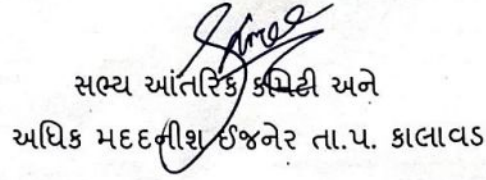 સભ્ય આંતરિક કમિટી અને
અધિક મદદનીશ ઈજનેર તા.પ. કાલાવડ